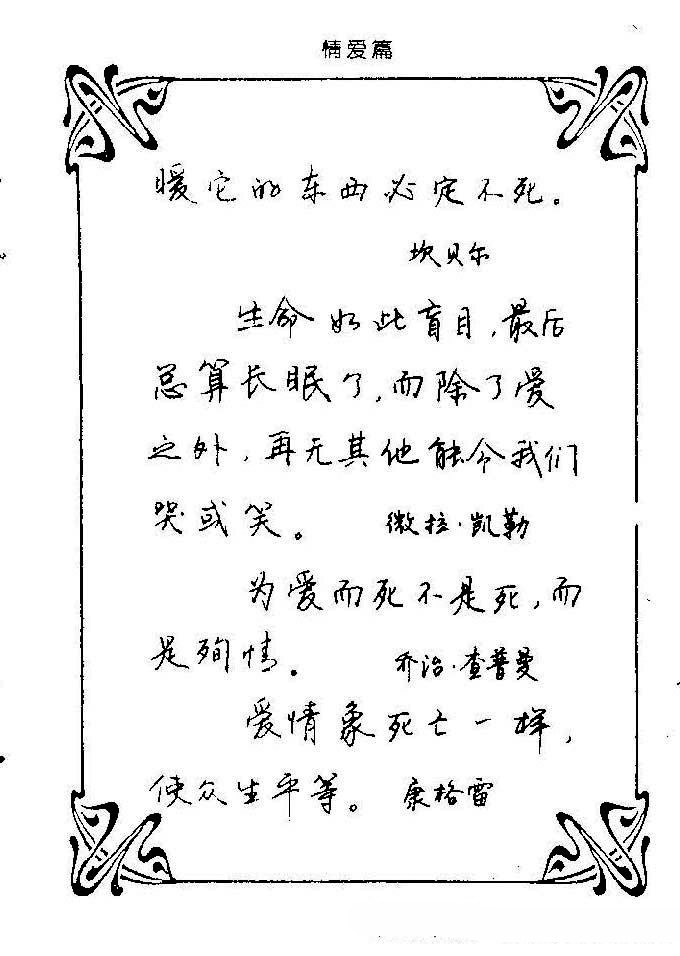 情爱篇
暖它的东西必定不死。
坎贝尔
生命如此盲目，最后
总算长眠了，而除了爱
之外，再无其他能令我们
哭或笑。 微拉·凯勒
为爱而死不是死，而
是殉情。 乔治·查普曼
爱情象死亡一样，
使众生平等。 康格雷